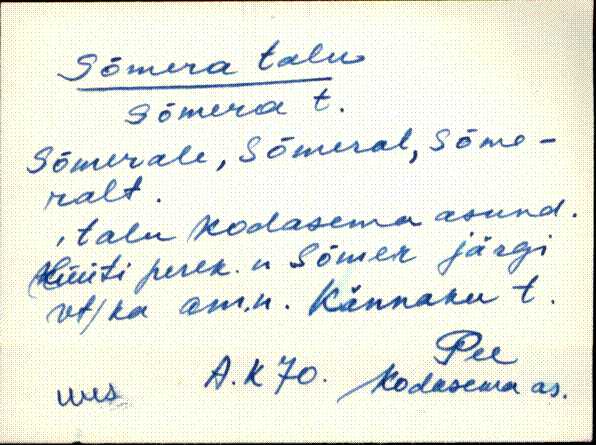 Sõmera talu
Sõmera t.
Sõmerale, Sõmeral, Sõme-
ralt.
, talu Kodasema asund.
Hüüti perek. n Sõmer järgi
vt/ka am.n. Kännaku t.
Pee
A.K 70. Kodasema as.